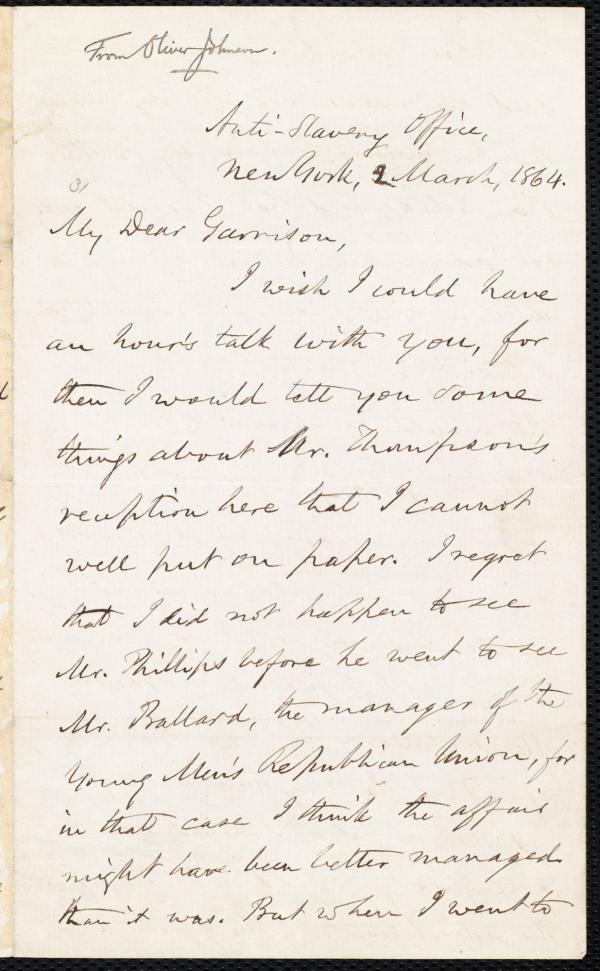 From Oliver Johnson.
Anti-Slavery Office,
New York, 2 March, 1864.
My Dear Garrison,
I wish I could have
an hour's talk with you, for
then I would tell you some
things about Mr. Thompson's
reception here that I cannot
well put on paper. I regret
that I did not happen to see
Mr. Phillips before he went to see
Mr. Ballard, the manager of the
Young Men's Republican Union, for
in that case I think the affair
might have been better managed
than it was. But when I went to